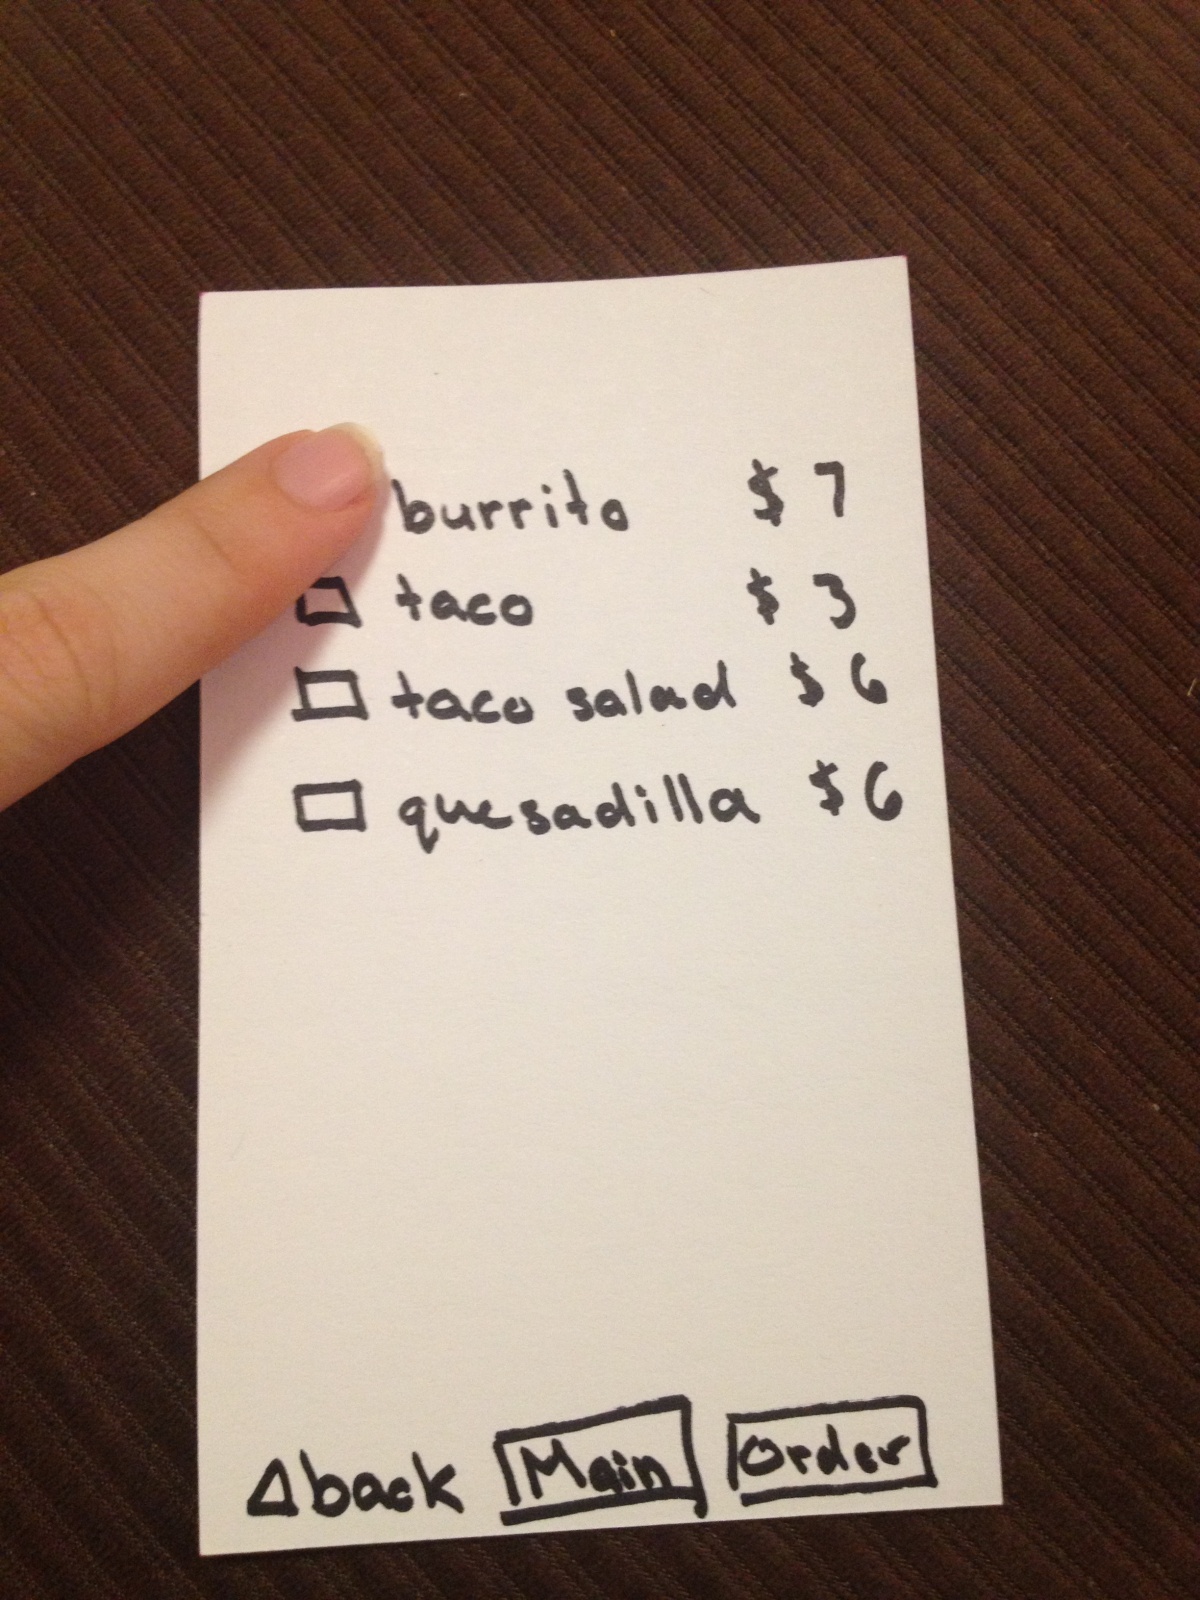 burrito $7
taco $3
taco salad $6
quesadilla $6
back Main Order